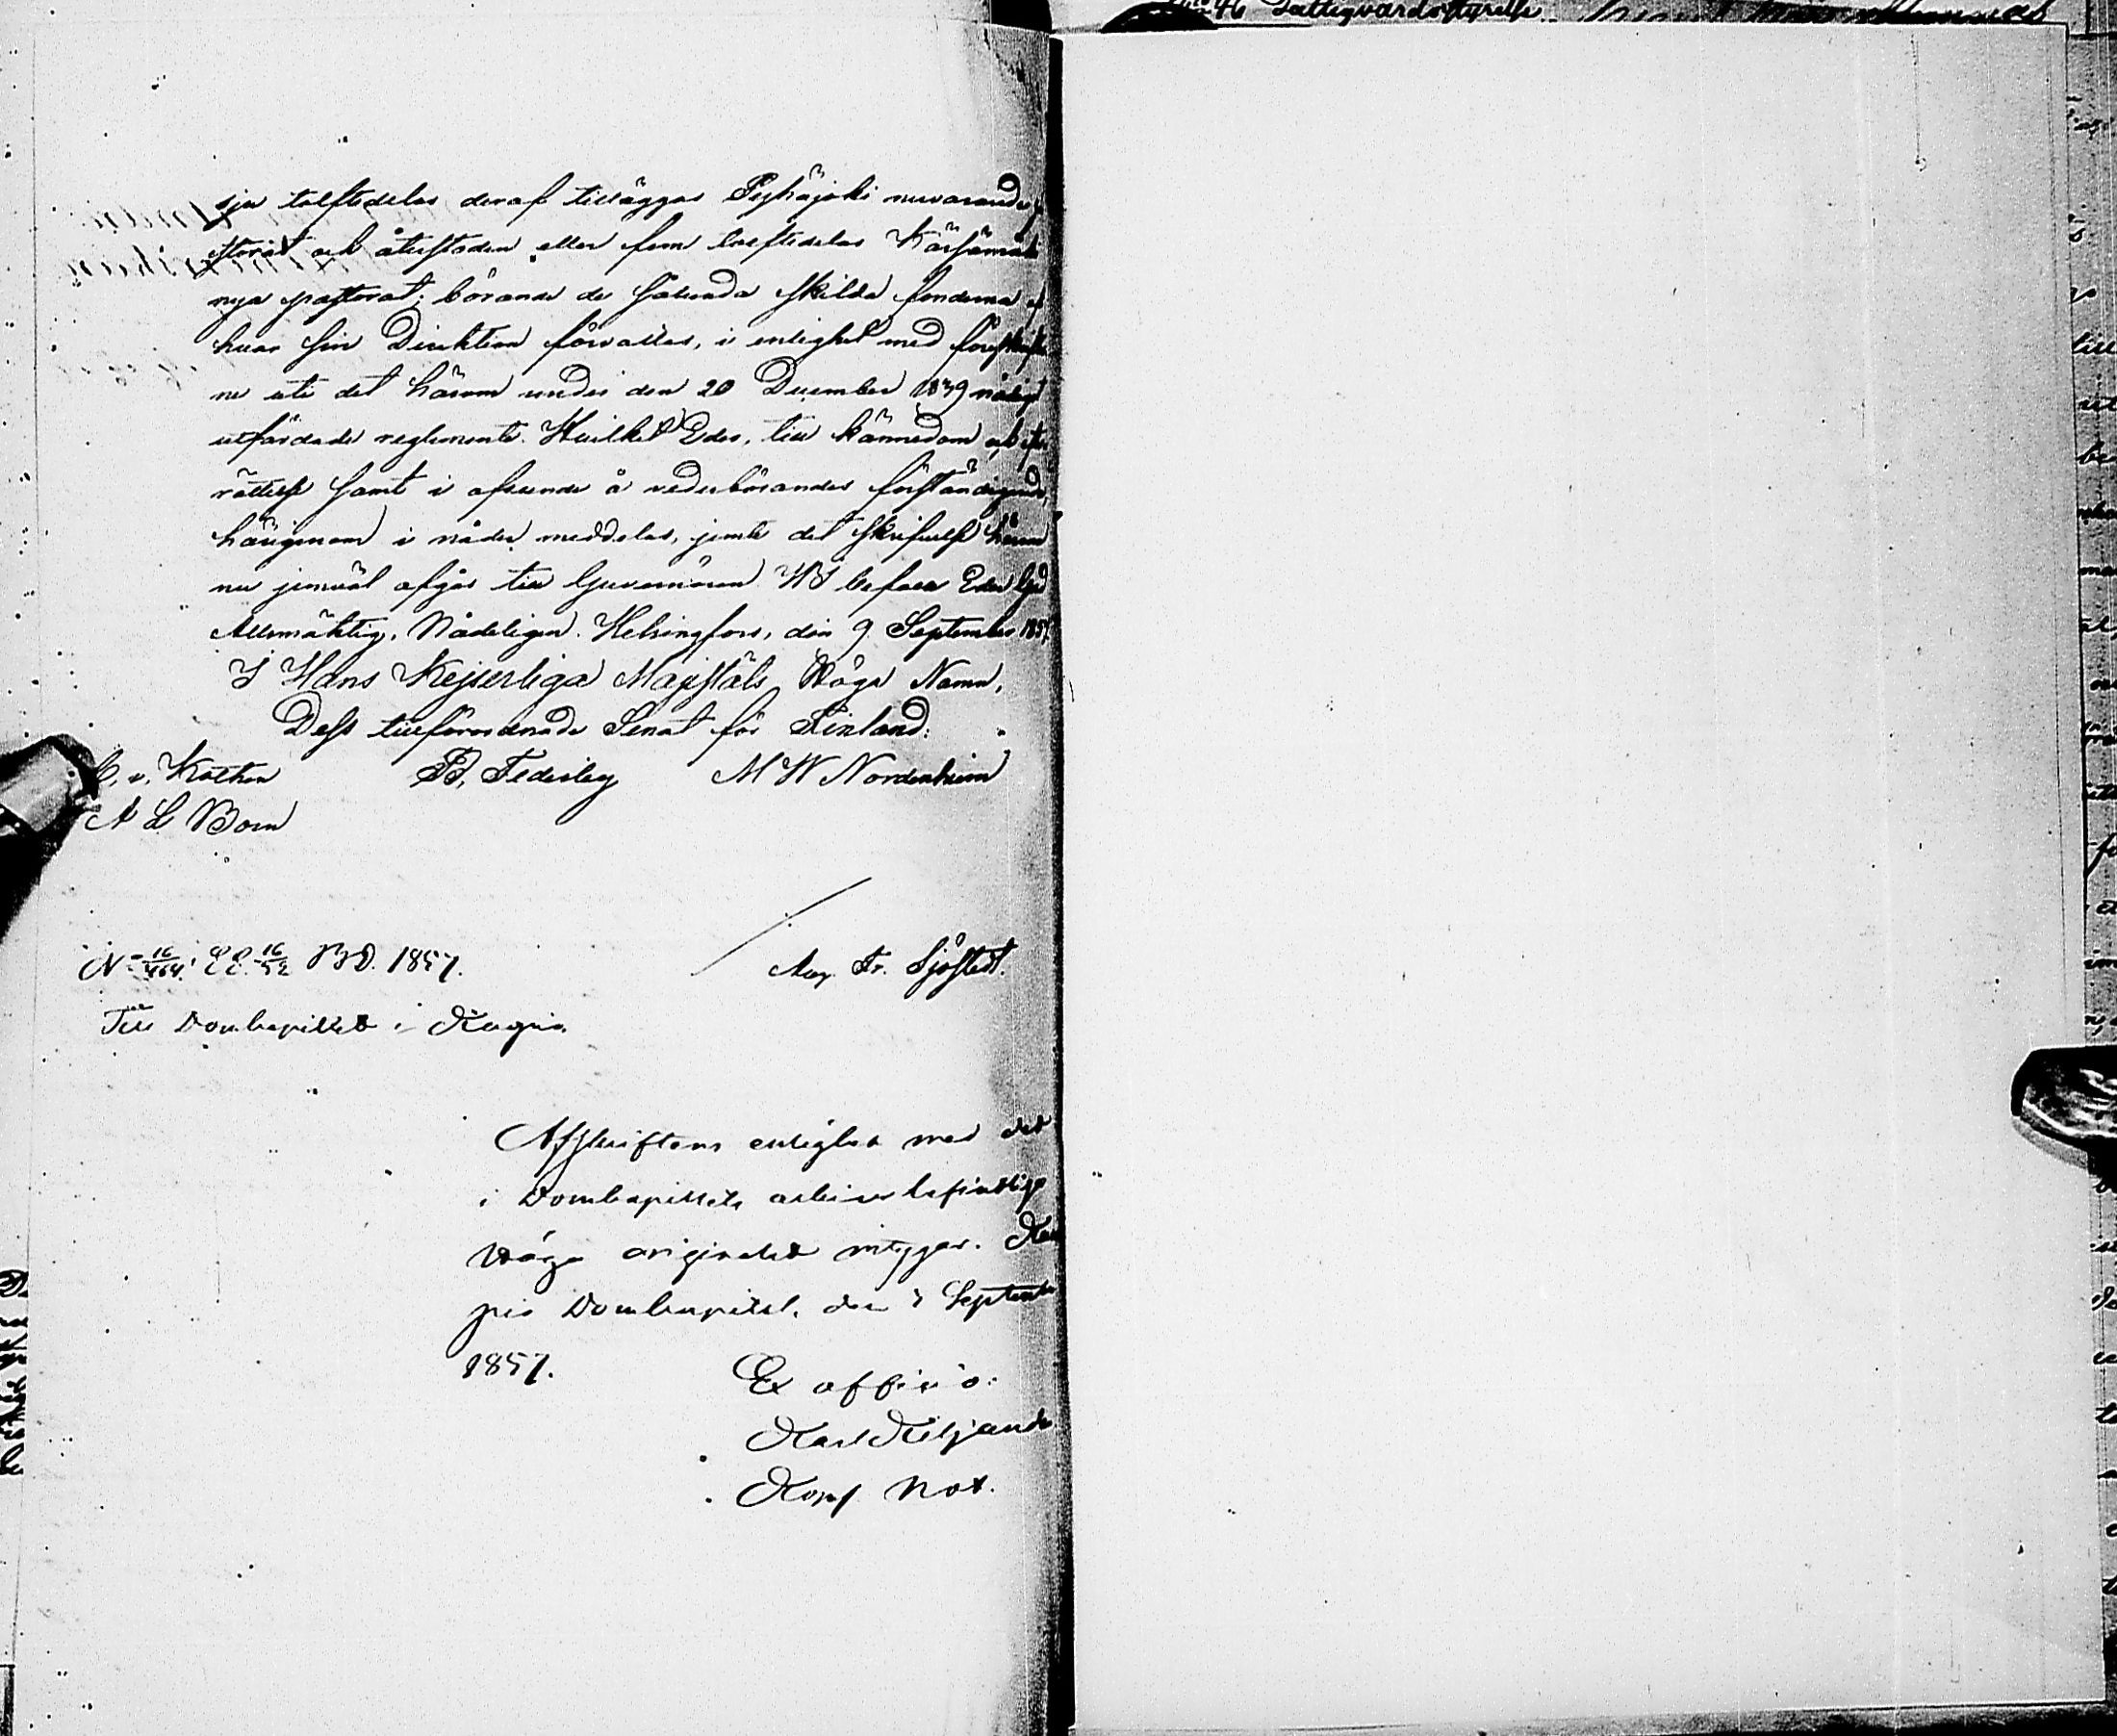 sju tolftedelar deraf tilläggas Pyhäjoki nuvarande
storat och återstoden eller fem tolftedelar Kärsämäki
nya pastorat; börande de sålunda skilda fonderna af
hvar sin Direktion förvaltas, i enlighet med föreskrifter
ne uti det härom under den 20 December 1839 nådigst
utfärdade reglemente. Hvilket Eder, till kännedom och efter
rättelse samt i afseende å vederbörandes förständigande,
härigenom i nåder meddelas, jemte det skrifvelse härom
nu jemväl afgår till Guvernören. Wi befalla Eder Gud
Allsmäktig, Nådeligen. Helsingfors, den 9 September 1857.
I Hans Kejserliga Majestäts Höga Namn,
Dess tillförordnade Senat för Finland:
C. v. Kothen B. Federley M W Nordenheim
A L Born
N= 16/464. E.E. 16/52 B.D. 1857. Aug. Fr. Sjöstedt.
Till Domkapitlet i Kuopio.
Afskriftens enlighet med det
i Domkapitlets arkiv befintliga
Höga originalet intygar. Kuo
pio Domkapitel, den September
1857. Ex officio:
Karl Kiljander
Kons. Not.
46 Fattigvårdsstyrelse